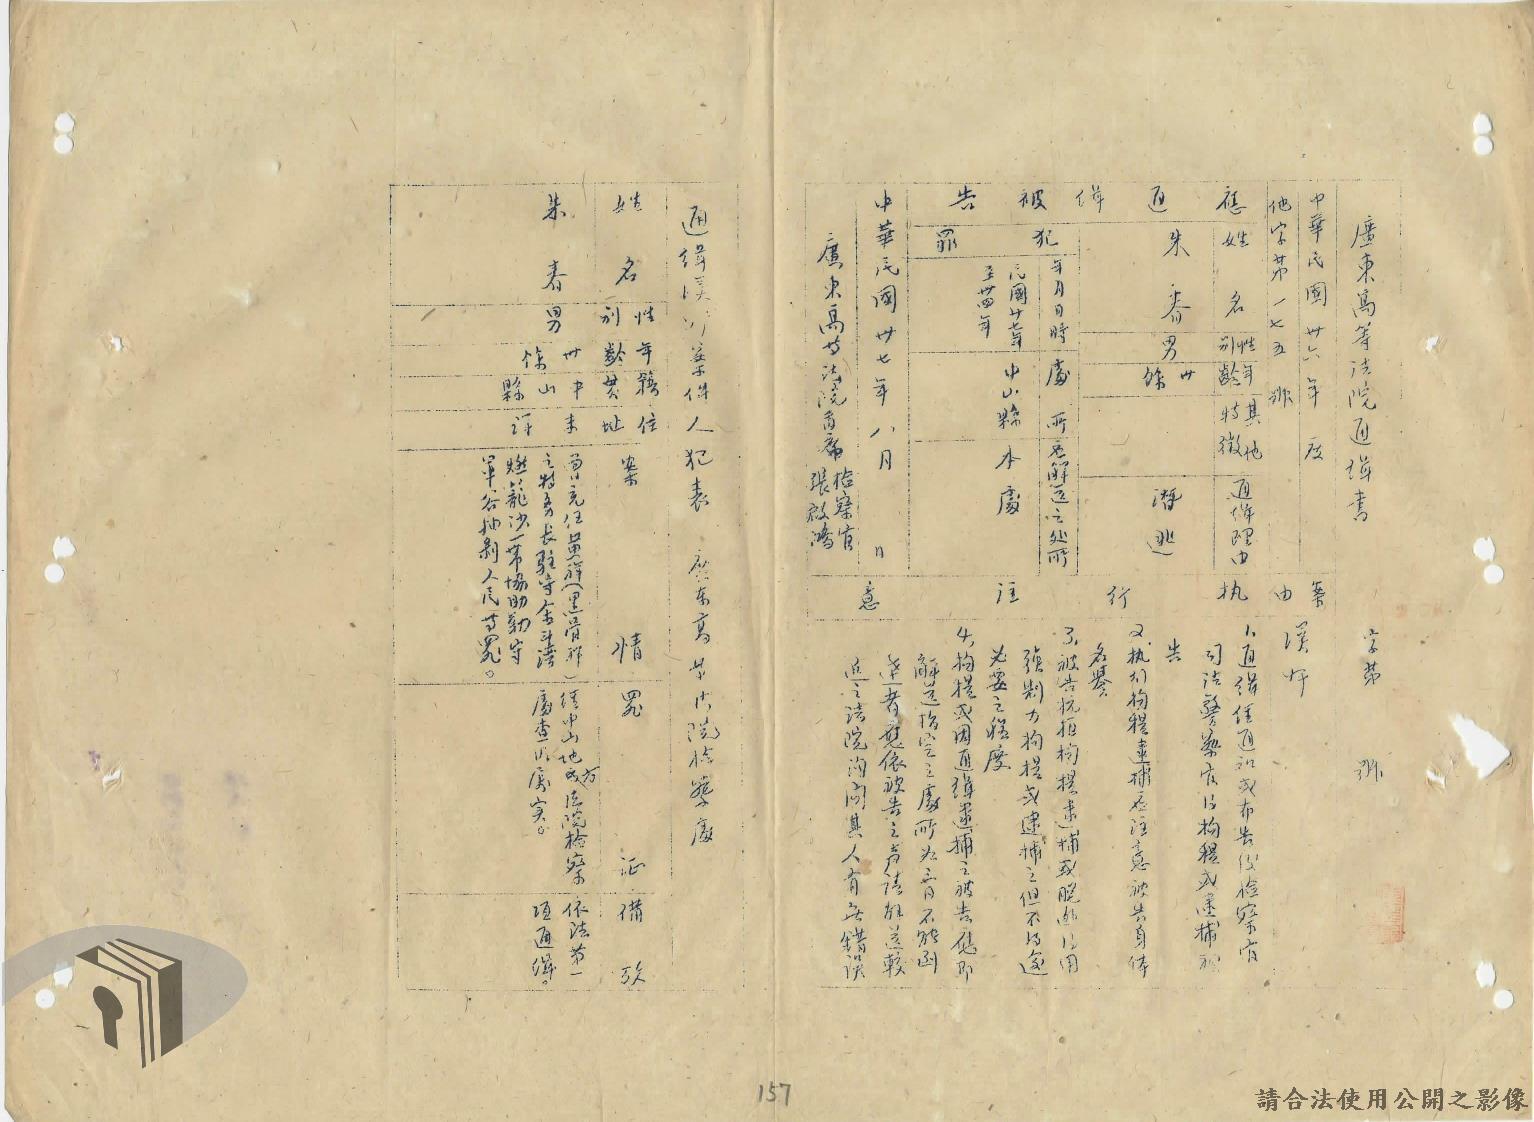 廣東高等法院通緝書
字第　號
中華民國卅六年度
他字第一七五號
應通緝被告
姓名
性別
年齡
其他特徵
通緝理由
朱春
男
卅餘
潛逃
犯罪
年月日時
處所
應解送之处所
民國廿七年
至卅四年
中山縣
本處
中華民國卅七年八月　日
廣東高等法院首席檢察官
張啟鴻
案由
漢奸
执行注意
1、通緝經通知或布告後檢察官
司法警察官得拘提或逮捕被
告
2、执行拘提逮捕應注意被告身体
名譽
3、被告抗拒拘提逮捕或脫逃得用
強制力拘提或逮捕之但不得逾
必要之程度
4、拘提或因通緝逮捕之被告應即
解送指定之處所如三日不能到
達者應依被告之声請解送較
近之法院詢問其人有無錯誤
通緝漢奸案件人犯表　廣东高等法院檢察處
姓名
性別
年齡
籍貫
住址
案情
罪証
備攷
朱春
男
卅餘
中山縣
未詳
曾充任黃祥(黑骨祥)
之特务長駐守
沙一帶協助勒守
軍谷抽剝人民等罪。
経中山地方法院檢察
處查明屬实。
依法第一
項通緝。
157
請合法使用公開之影像